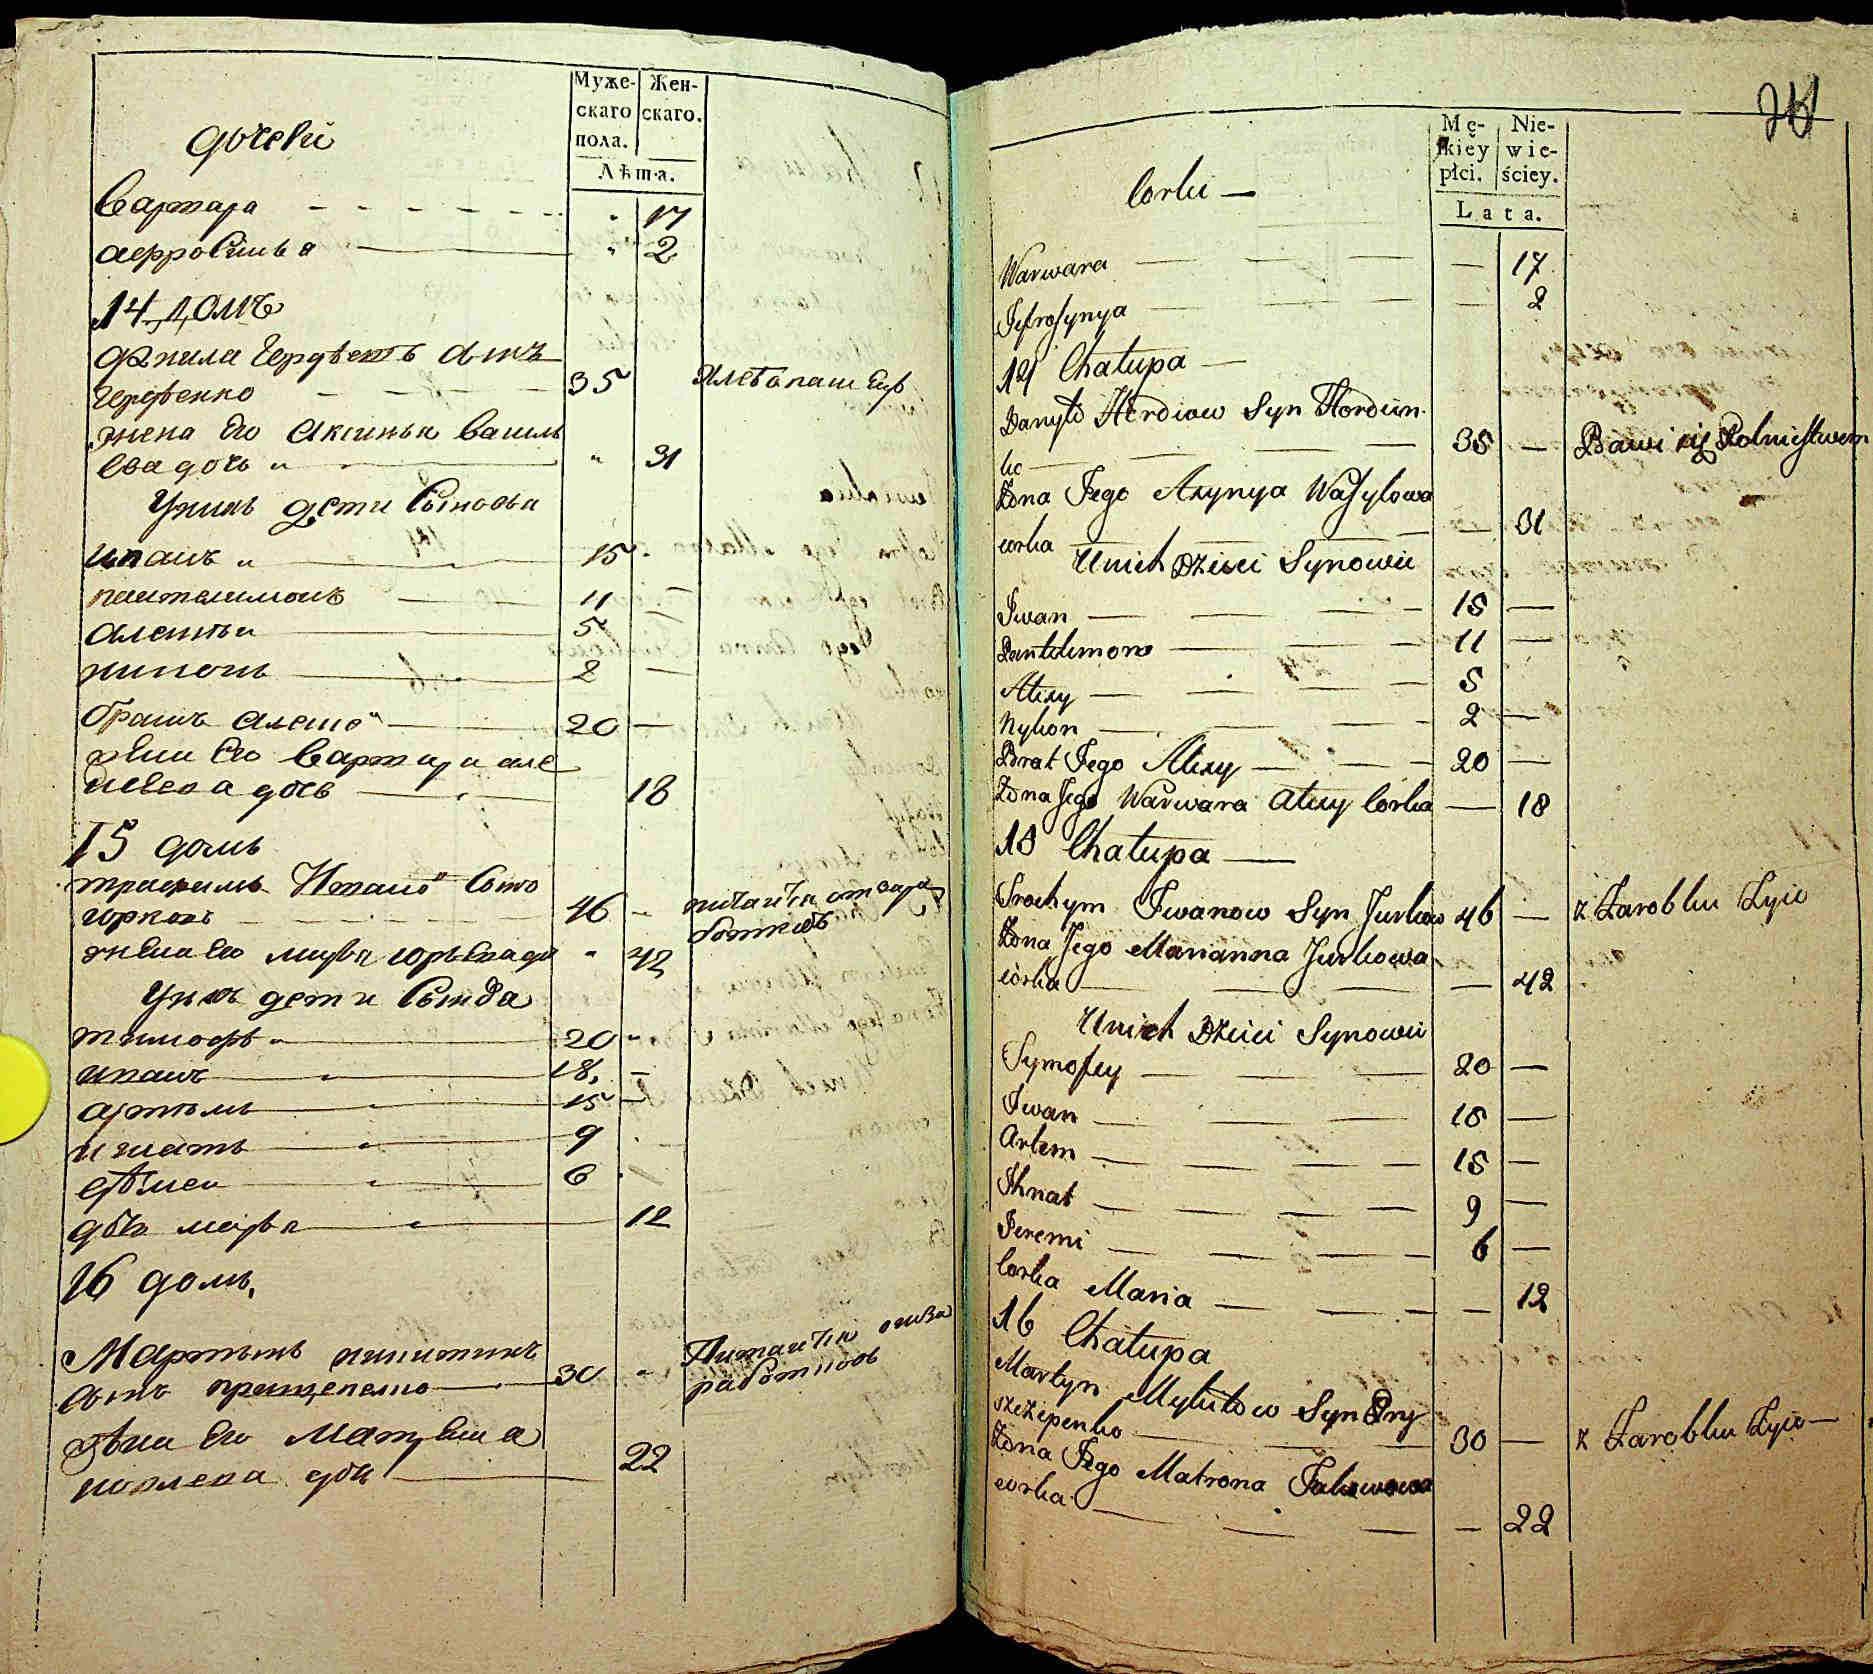 Муже-
скаго
пола.
Жен-
скаго.
Лѣта.
дочкы
Варвара 17
Афросинья 2
14 домъ
Данила Гордѣевъ сынъ
Гордѣенко 35
жена Его Аксинья Василь
ева дочь 31
У них дети Сыновья
Иванъ 15
пантелимонъ 11
Алексѣй 5
никонъ 2
братъ Алексѣй 20
жена Его Варвара Але
ксеева дочь 18
15 домъ
трафимъ Ивановъ Сынъ
юрковъ 46
питается от зара
ботковъ
жена Его 42
У них дети Сынова
тимофѣй 20
Иванъ 18
Артемъ 15
игнатъ 9
ерѣмей 6
дочь марья 12
16 домъ
Мартынъ никитинъ
сынъ прищепенко 30
Питается от за
работковъ
жена Его Матрена
яковлева дочь 22
24
Mę-
skiéy
płci.
Nie-
wie-
ściey.
Lata.
Corki
Warwara 17
Jefrosynya 2
14 Chatupa
Danyło Herdiow Syn Hordiin
ko 35 Bawi się Rolnictwem
Żona Jego Axynya Wasylowa
corka 31
Unich Dzieci Synowie
Jwan 15
Pantelimon 11
Alexy 5
Nykon 2
Brat Jego Alexy 20
Żona Jego Warwara Alexy Corka 18
15 Chatupa
Trochym Jwanow Syn Jurkow 46 z Zarobku Żyie
Żona Jego Marianna Jurkowa
corka 42
Unich Dzieci Synowie
Tymofey 20
Jwan 18
Artem 15
Jhnat 9
Jeremi 6
Corka Maria 12
16 Chatupa
Martyn Mykitow Syn Pry
szczepenko 30 z Zarobku Żyie
Żona Jego Matrona Jakowowa
corka 22